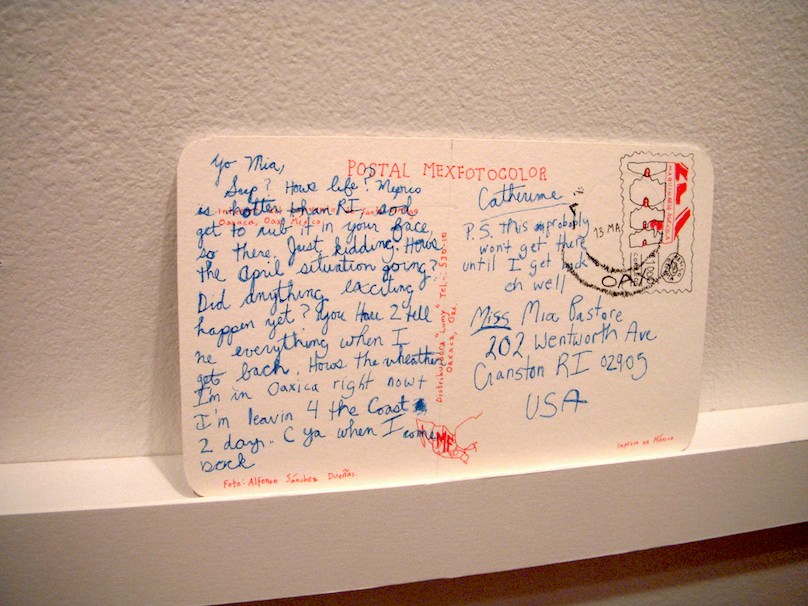 Yo Mia,
Sup? Hows life? Mexico
is hotter than RI, so I
get to rub it in your face,
so there. Just kidding. Hows
the april situation going?
Did anything exciting
happen yet? You Have 2 tell
me everything when I
get back. Hows the wheather
I'm in Oaxica right now +
I'm leavin 4 the Coast
2 day.. C ya when I come
back
POSTAL MEXFOTOCOLOR
Oaxaca, Oax. México
Foto: Alfonso Sánchez Dueñas.
Distribuidora "Luny" Tel.: 530-10
Oaxaca, Oax.
MF
Catherine
P.S. this probably
won't get there
until I get back
oh well
13 MA
OAX
Miss Mia Pastore
202 Wentworth Ave
Cranston RI 02905
USA
Impreso en México